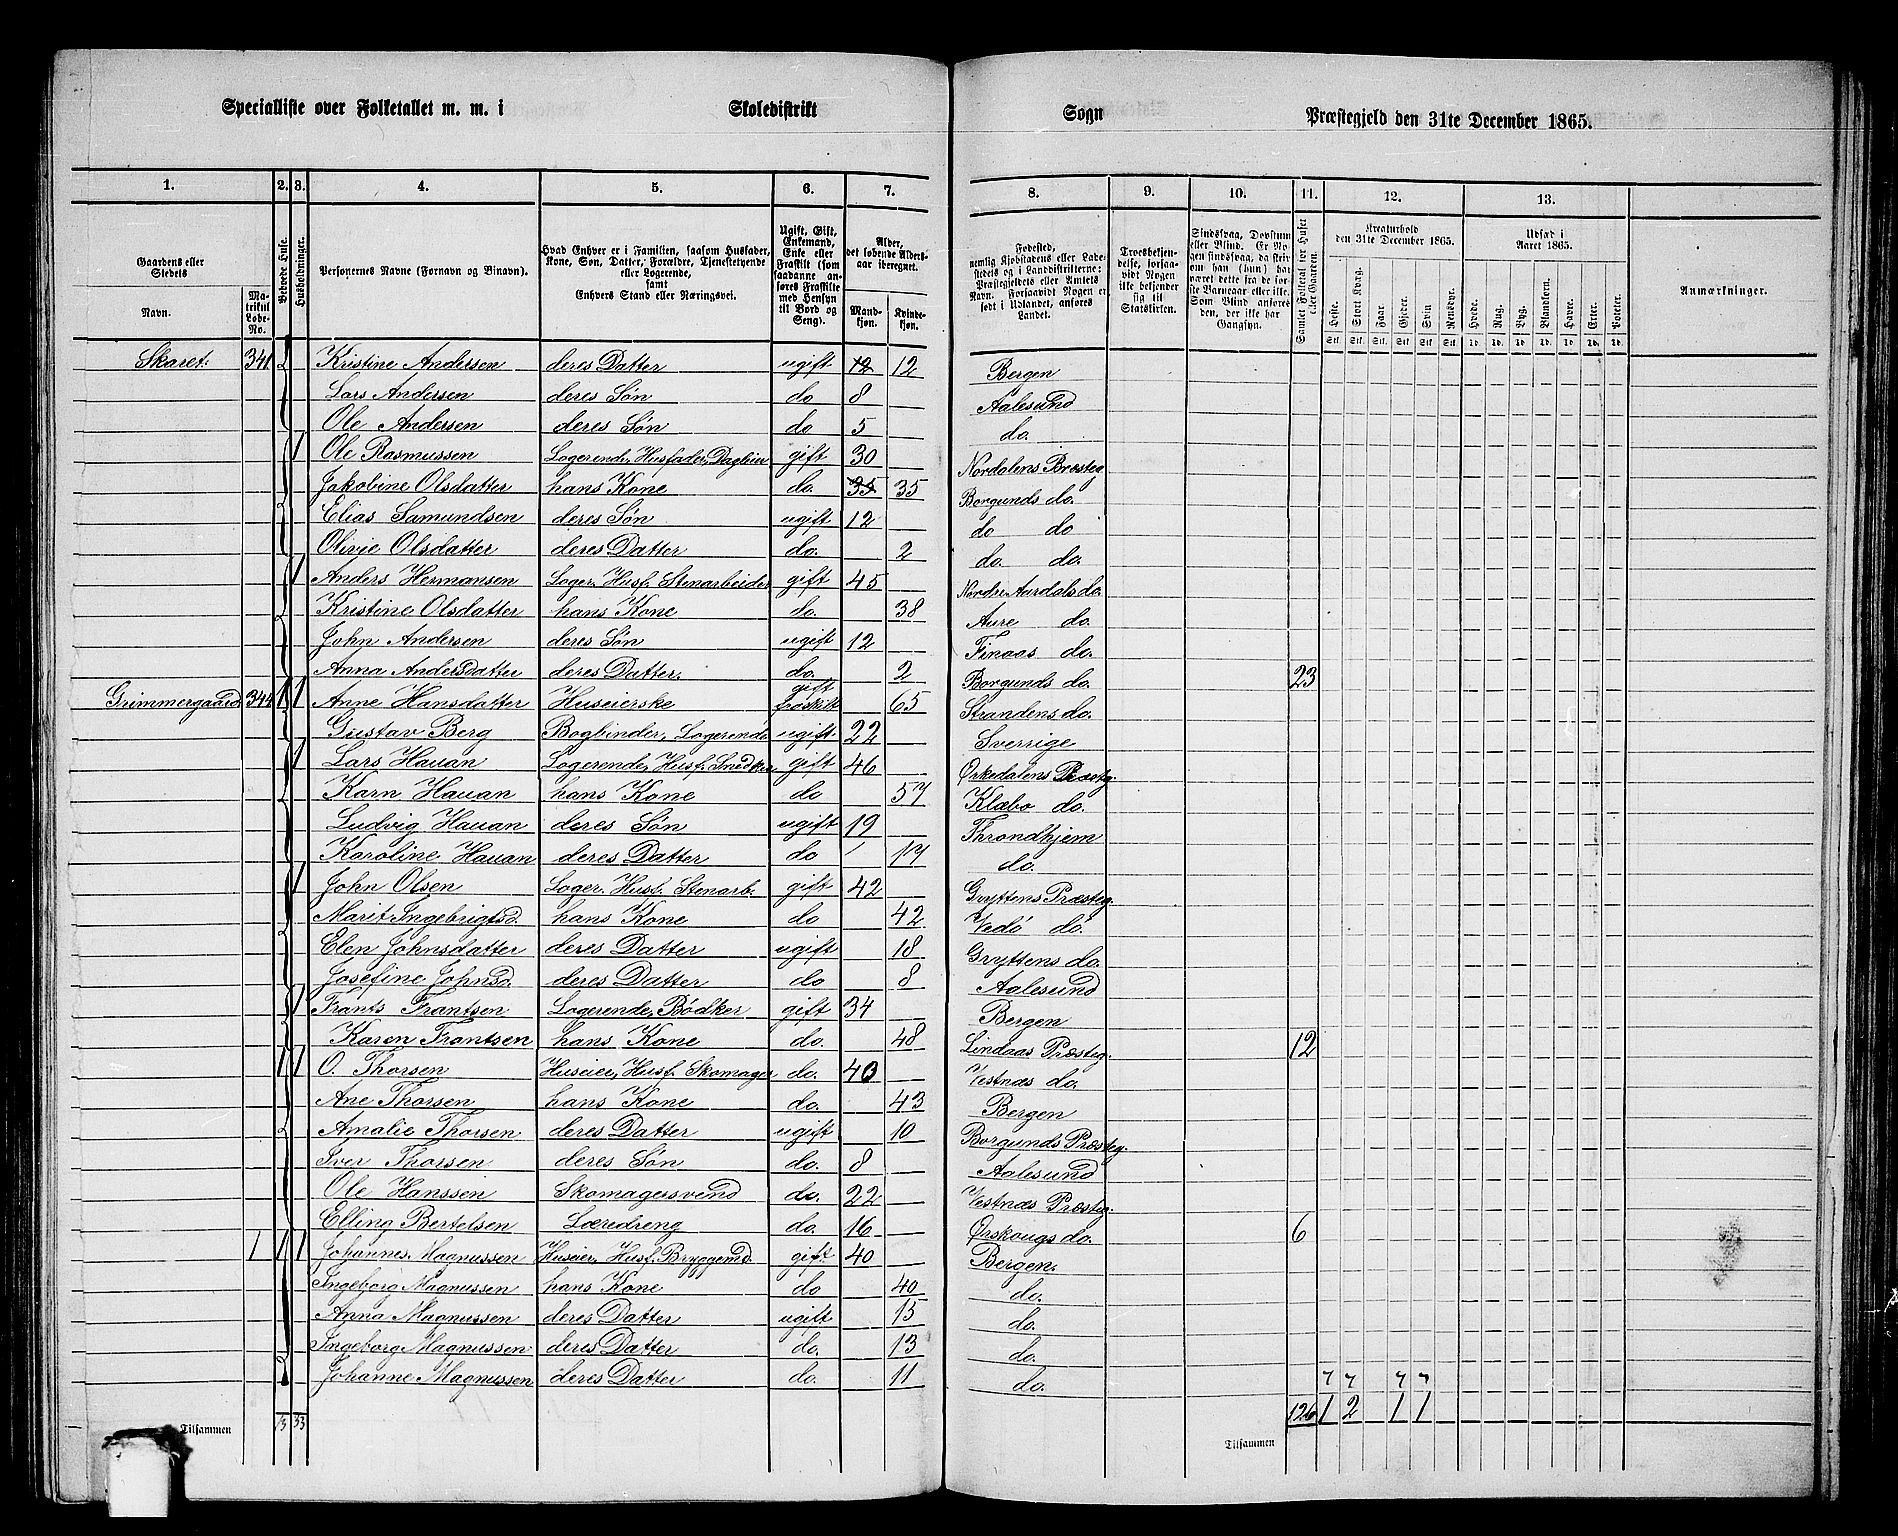 Specialliste over Folketallet m. m. i Skoledistrikt Sogn Præstegjeld den 31te December 1865.
1. 2. 3. 4. 5. 6. 7. 8. 9. 10. 11. 12. 13.
Gaardens eller Stedets
Navn.
Matrikul Løbe-No.
Beboede Huse.
Husholdninger.
Personernes Navne (Fornavn og Binavn).
Hvad Enhver er i Familien, saasom Husfader, Kone, Søn, Datter, Forældre, Tjenestetyende eller Logerende, samt Enhvers Stand eller Næringsvei.
Ugift, Gift, Enkemand, Enke eller Fraskilt (som saadanne anføres Fraskilte med Hensyn til Bord og Seng).
Alder, det løbende Aldersaar iberegnet.
Mandkjøn. Kvindekjøn.
Fødested, nemlig Kjøbstadens eller Ladestedets og i Landdistrikterne: Præstegjeldets eller Amtets Navn. Forsaavidt Nogen er født i Udlandet, anføres Landet.
Troesbekjendelse, forsaavidt Nogen ikke bekjender sig til Statskirken.
Sindssvag, Døvstum eller Blind. Er Nogen sindssvag, da skrives om han (hun) har været dette fra de første Barneaar eller ikke. Som Blind anføres den, der ikke har Gangsyn.
Samlet Folketal for Huset eller Gaarden.
Kreaturhold den 31te December 1865.
Heste. Stort Kvæg. Faar. Gjeder. Svin. Rensdyr.
Udsæd i Aaret 1865.
Hvede. Rug. Byg. Blandkorn. Havre. Erter. Poteter.
Anmærkninger.
Skaret. 341 Kristine Andersen deres Datter ugift 12 12 Bergen
Lars Andersen deres Søn do 8 Aalesund
Ole Andersen deres Søn do 5 do.
1 Ole Rasmussen Logerende, Husfader, Dagleier gift 30 Nordalens Præsteg
Jakobine Olsdatter hans Kone do. 35 35 Borgunds do.
Elias Samundsen deres Søn ugift 12 do do
Olivie Olsdatter deres Datter do. 2 do. do.
1 Anders Hermansen Loger. Husf. Stenarbeider gift 45 Nordre Aardals do.
Kristine Olsdatter hans Kone do. 38 Aure do.
John Andersen deres Søn ugift 12 Finaas do.
Anna Andersdatter deres Datter. do. 2 Borgunds do. 23
Grimmergaard 344 1 1 Anne Hansdatter Huseierske gift fraskilt 65 Strandens do.
Gustav Berg Bogbinder, Logerende ugift 22 Sverrige
1 Lars Hauan Logerende, Husf. Snedker gift 46 Ørkedalens Præsteg.
Karn Hauan hans Kone do 57 Klæbo do.
Ludvig Hauan deres Søn ugift 19 Throndhjem
Karoline Hauan deres Datter do 17 do.
1 John Olsen Loger. Husf. Stenarb. gift 42 Gryttens Præsteg.
Marit Ingebrigtsd. hans Kone do 42 Vedø do.
Elen Johnsdatter deres Datter ugift 18 Gryttens do.
Josefine Johnsd. deres Datter do 8 Aalesund
1 Frants Frantsen Logerende, Bødker gift 34 Bergen
Karen Frantsen hans Kone do. 48 Lindaas Præsteg. 12
1 1 O. Thorsen Huseier, Husf. Skomager do. 40 Vestnæs do.
Ane Thorsen hans Kone do. 43 Bergen
Amalie Thorsen deres Datter ugift 10 Borgunds Præsteg.
Iver Thorsen deres Søn do. 8 Aalesund
Ole Hanssen Skomagersvend do. 22 Vestnæs Præsteg.
Elling Bertelsen Læredreng do. 16 Ørskougs do. 6
1 1 1 Johannes Magnussen Huseier, Husf. Bryggemd. gift 40 Bergen.
Ingeborg Magnussen hans Kone do 40 do.
Anna Magnussen deres Datter ugift 15 do.
Ingeborg Magnussen deres Datter do. 13 do.
Johanne Magnussen deres Datter do. 11 do.
Tilsammen 13 33 Tilsammen 126 1 2 1 1